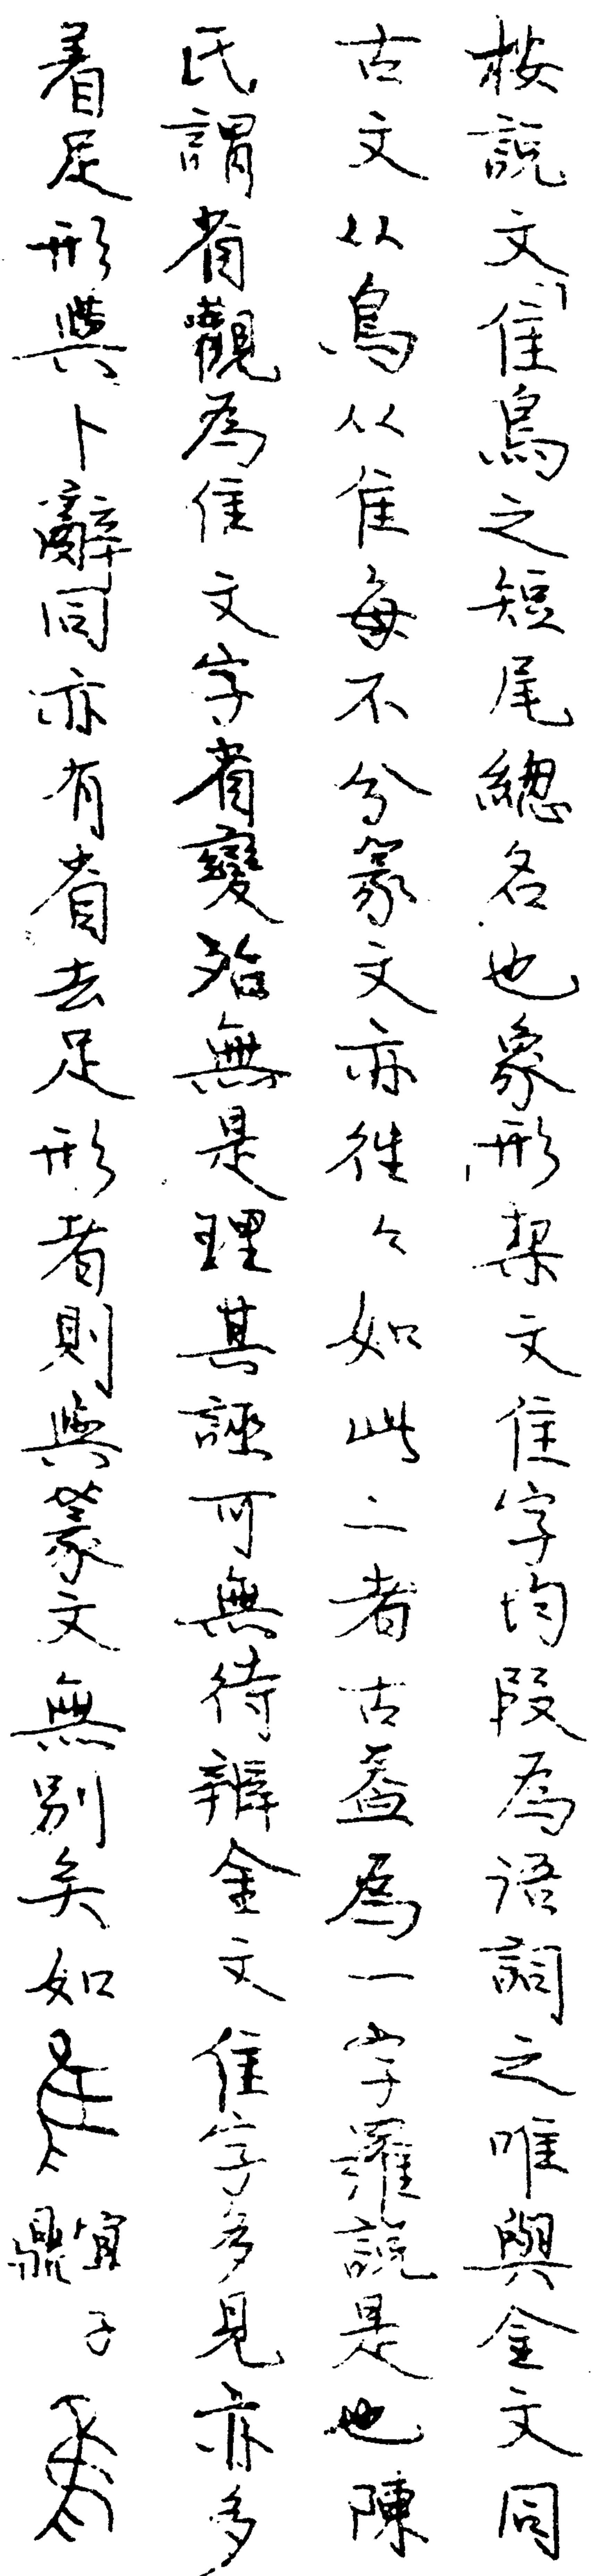 按說文「隹鳥之短尾總名也象形栔文隹字均叚為語詞之唯與金文同
古文从鳥从隹每不分篆文亦往々如此二者古蓋為一字羅說是也陳
氏謂省觀為隹文字省變殆無是理其誣可無待辨金文隹字多見亦多
着足形與卜辭同亦有省去足形者則與篆文無別矣如宜子鼎